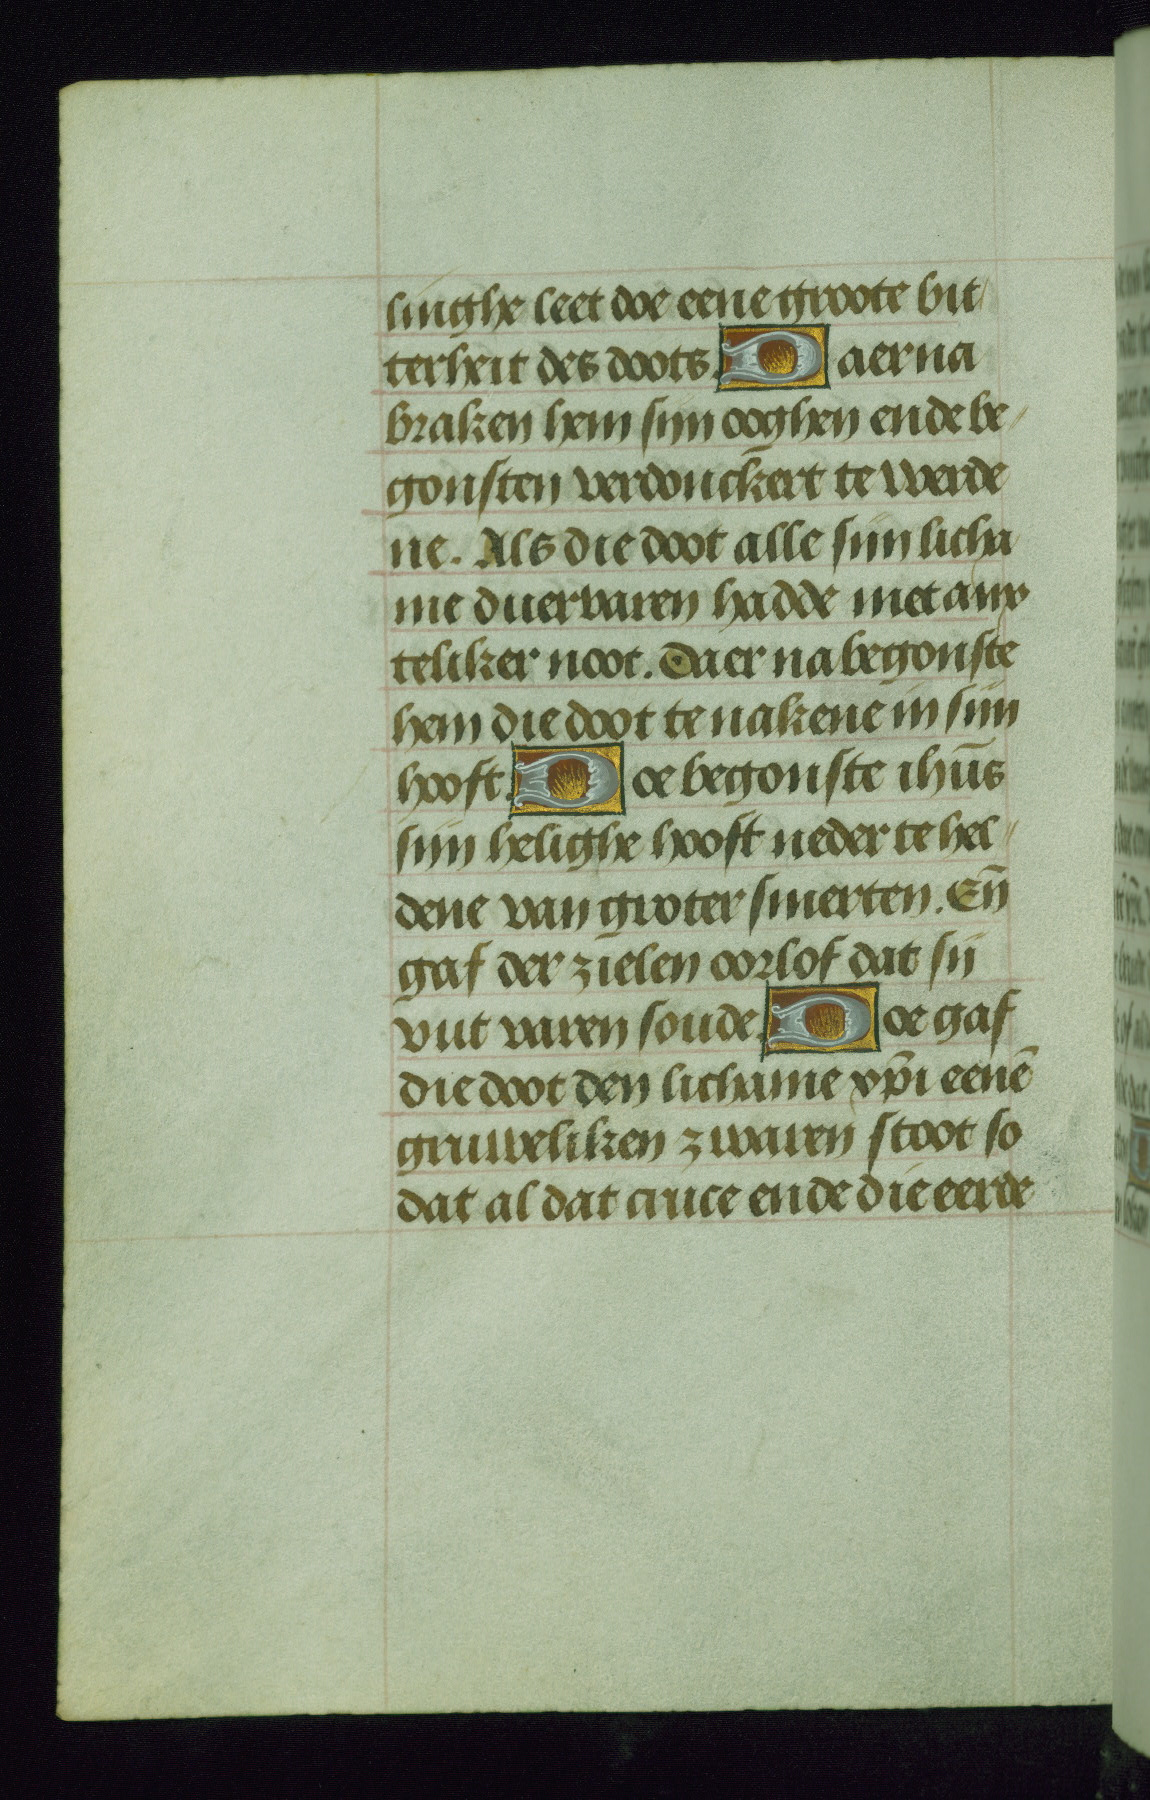 linghe leet doe eene groote bit/
terheit des doots. Daer na
braken hem sijn ooghen ende be/
gonsten verdonckert te werde
ne. Als die doot alle sijn licha
me duervaren hadde met anx
teliker noot. Daer na begonste
hem die doot te nakene in sijn
hooft. Doe begonste ihūs
sijn helighe hooft neder te hel/
dene van groter smerten. Eñ
gaf der zielen oorlof dat sij
vut varen soude. Doe gaf
die doot den lichame xp̄i eenē
gruweliken zwaren stoot so
dat al dat cruce ende die eerde